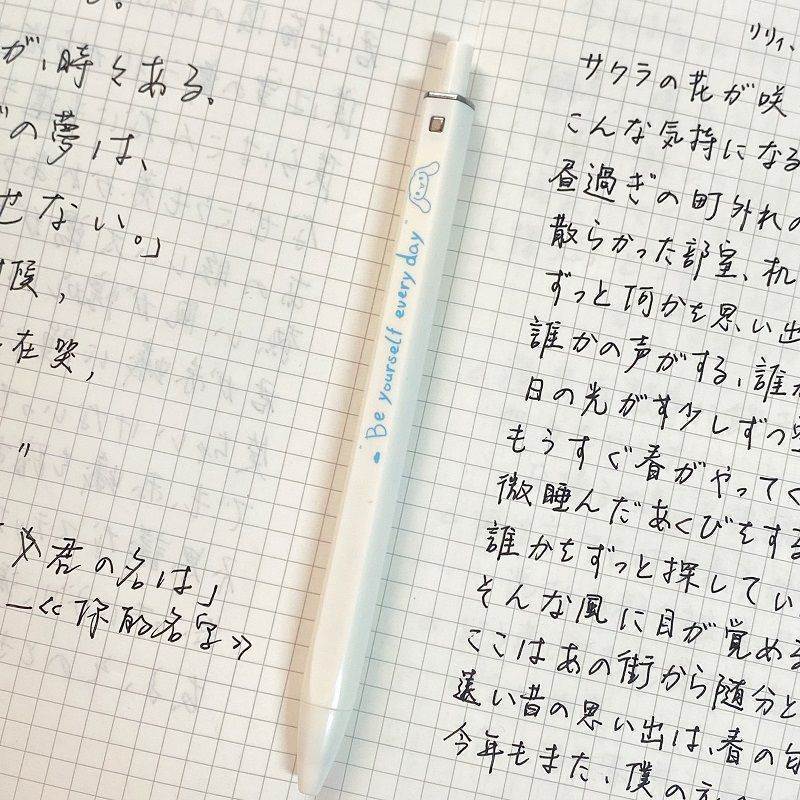 が、時々ある。
の夢は、
せない。」
候，
在哭，
"
君の名は」
—《你的名字》
Be yourself every day
リリィ、
サクラの花が咲
こんな気持になる
昼過ぎの町外れの
散らかった部室、机
ずっと何かを思い出
誰かの声がする、誰か
日の光が少しずつ
もうすぐ春がやってく
微睡んだあくびをする
誰かをずっと探してい
そんな風に目が覚める
ここはあの街から随分と
遠い昔の思い出は、春の
今年もまた、僕の